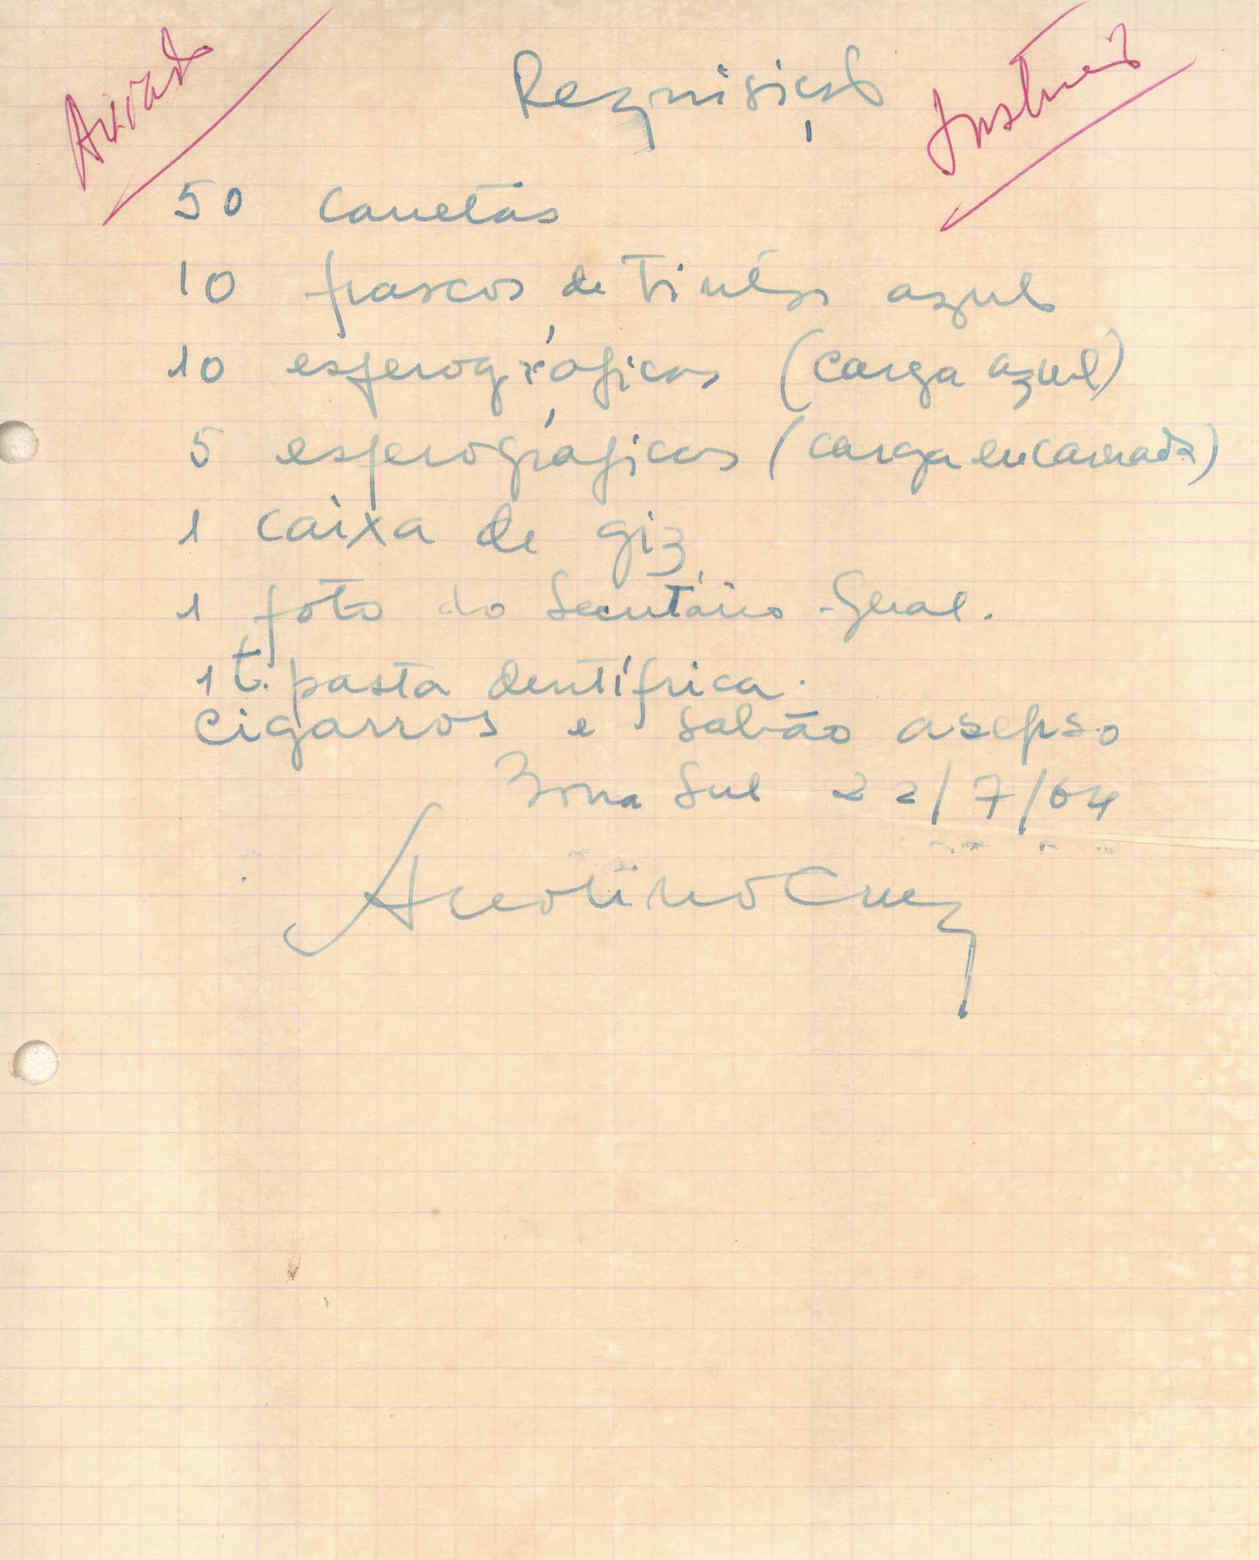 Aviado
Instrução
Requisição
50 canetas
10 frascos de tinta azul
10 esferográficas (carga azul)
5 esferográficas (carga encarnada)
1 caixa de giz
1 foto do Secretário-Geral.
1 t. pasta dentífrica.
Cigarros e sabão asepso
Zona Sul 22/7/64
Areolino Cruz